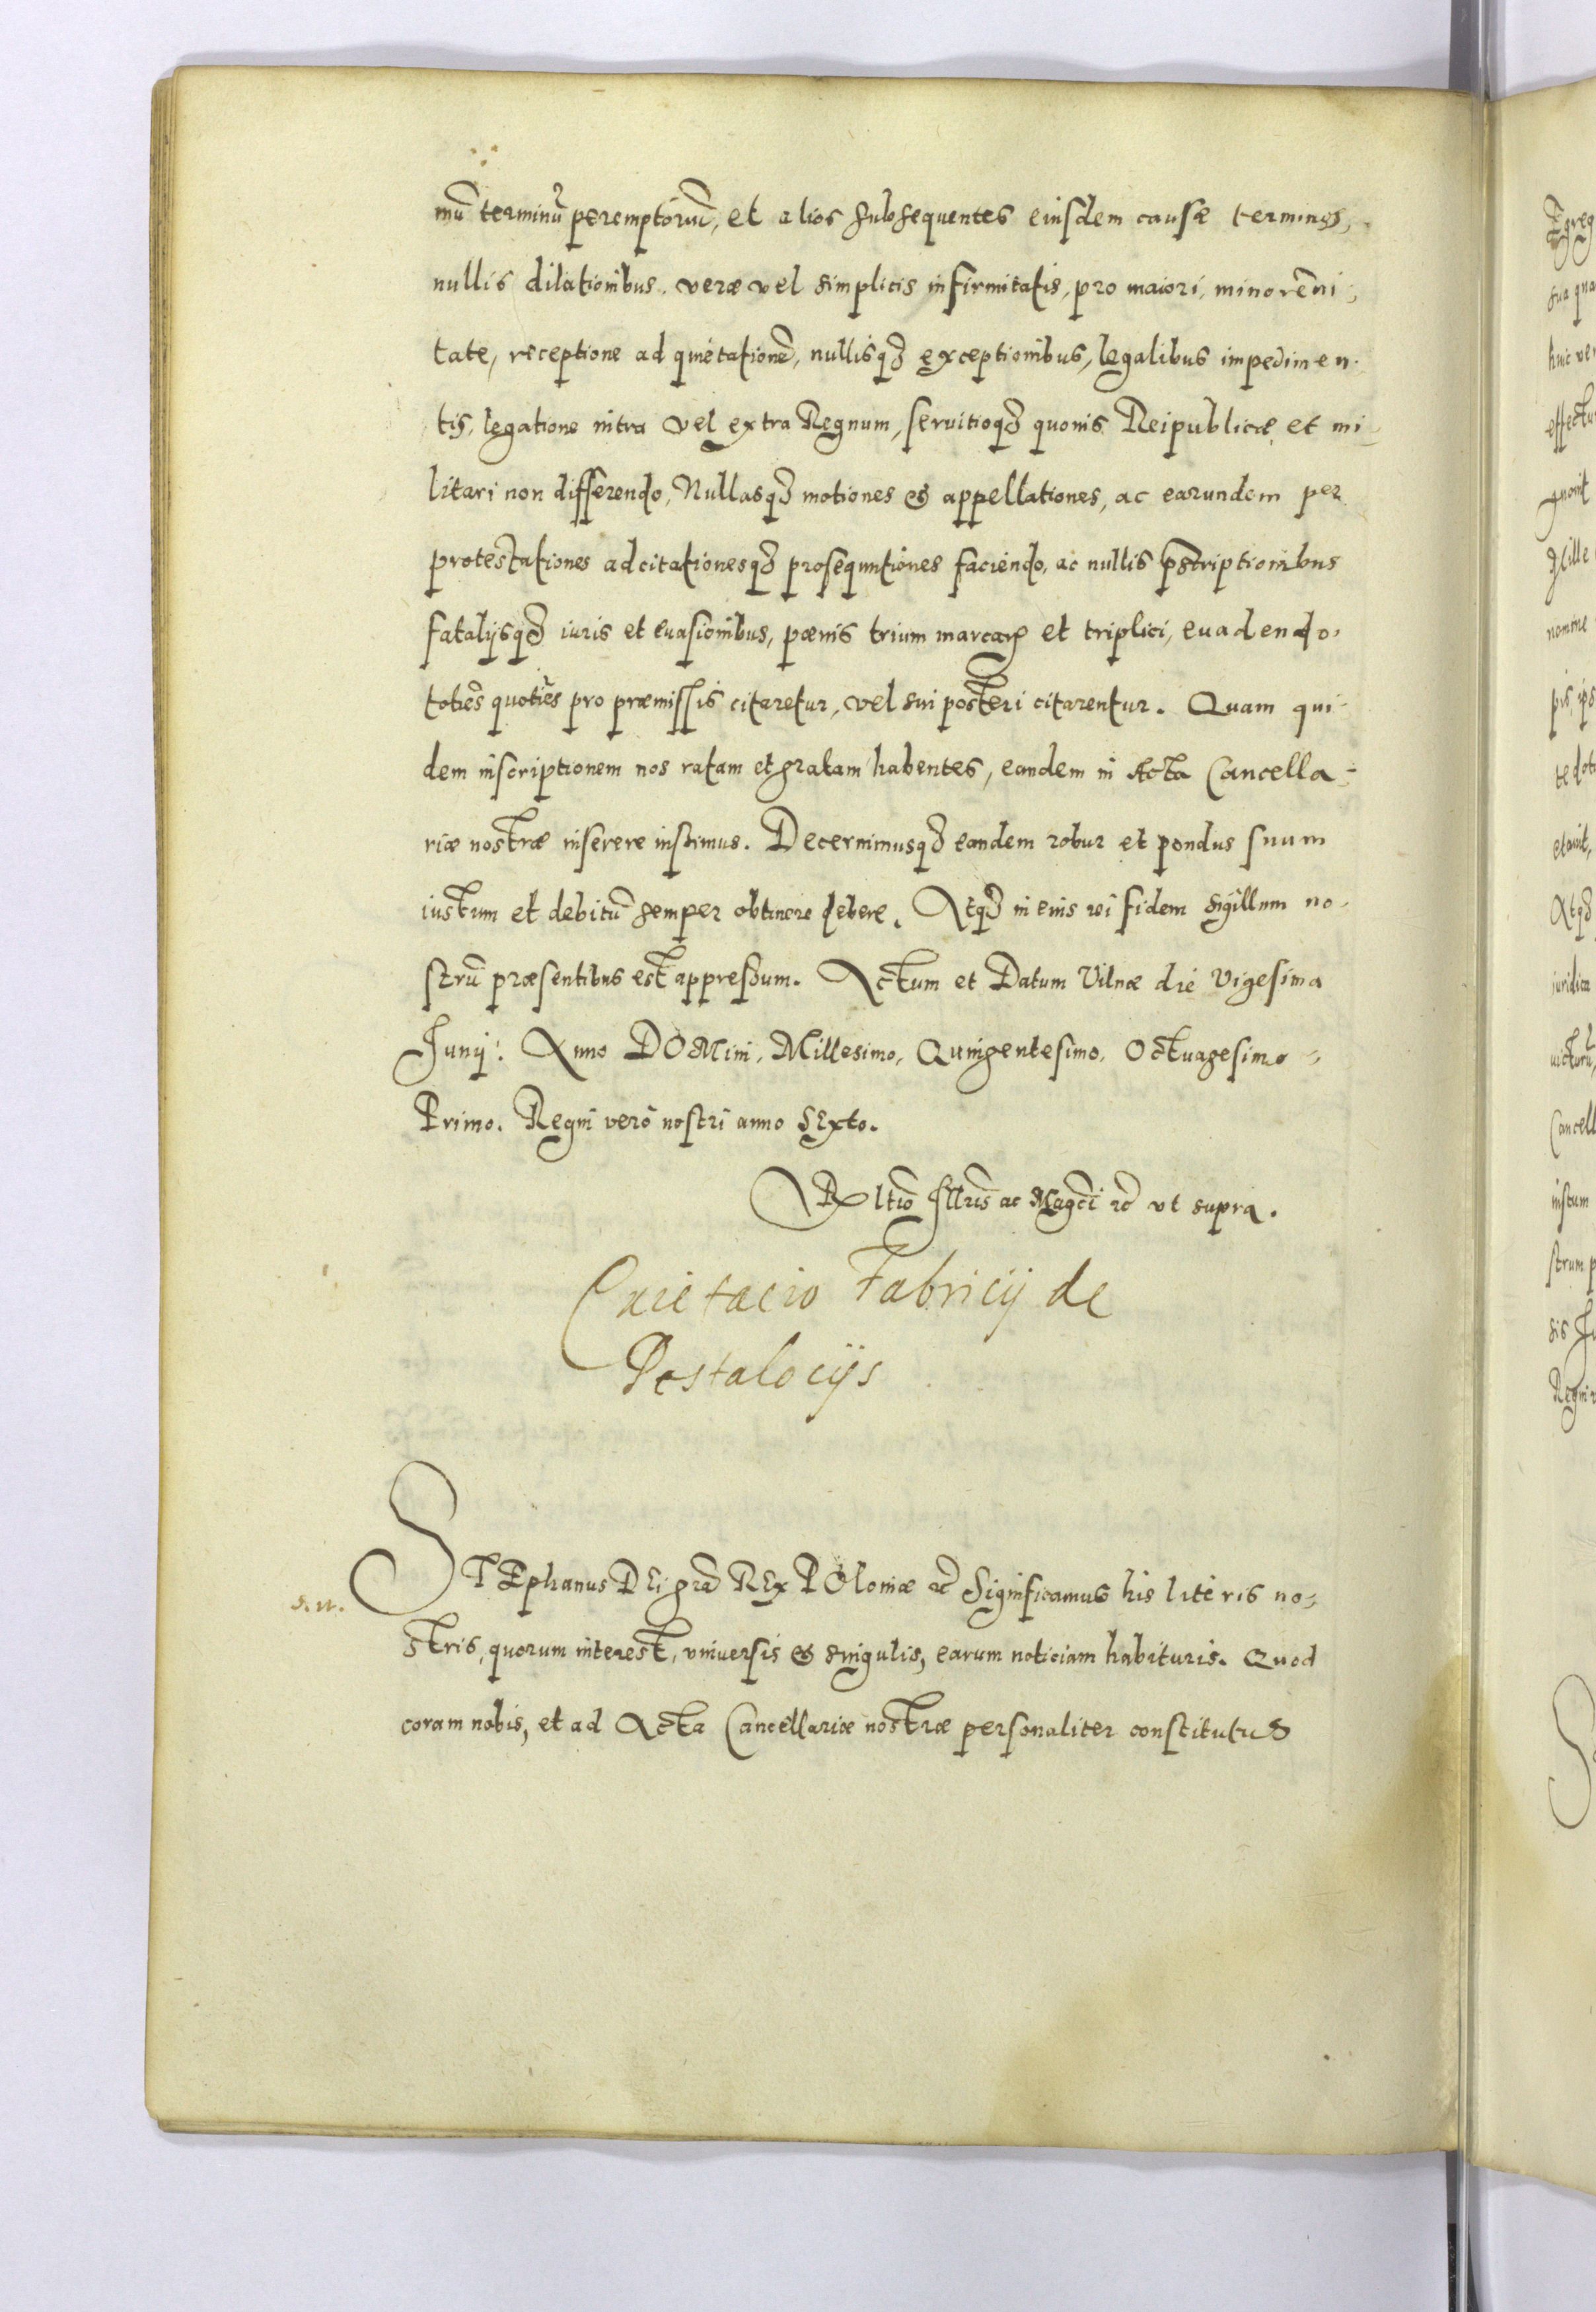 mũ terminũ peremptoriũ, et alios subsequentes eiusdem causæ terminos,
nullis dilationibus. veræ vel simplicis infirmitatis, pro maiori, minorẽni-
tate, receptione ad quietationẽ, nullisqȝ exceptionibus, legalibus impedimen-
tis, legatione intra vel extra Regnum, seruitioqȝ quouis Reipublicæ et mi-
litari non differendo, Nullasqȝ motiones & appellationes, ac earundem per
protestationes adcitationesqȝ prosequutiones faciendo, ac nullis p̃scriptionibus
fatalijsqȝ iuris et euasionibus, pœnis trium marcarꝝ et triplici, euadendo.
toties quoties pro præmissis citaretur, vel sui posteri citarentur. Quam qui-
dem inscriptionem nos ratam et gratam habentes, eandem in Acta Cancella-
riæ nostræ inserere iussimus. Decernimusqȝ eandem robur et pondus suum
iustum et debitũ semper obtinere debere. Atqȝ in eius rei fidem sigillum no-
strũ præsentibus est appressum. Actum et Datum Vilnæ die Vigesima
Junij. Anno DOMini, Millesimo, Quingentesimo, Octuagesimo-
Primo. Regni vero nostri anno SExto.
Rltio Illris ac Magci ꝛc vt supra.
Quietacio Fabricij de
Pestalocijs
STEphanus DEi gra REx POloniæ ꝛc Significamus his literis no-
s. n.
stris, quorum interest, vniuersis & singulis, earum noticiam habituris. Quod
coram nobis, et ad Acta Cancellariæ nostræ personaliter constitutus